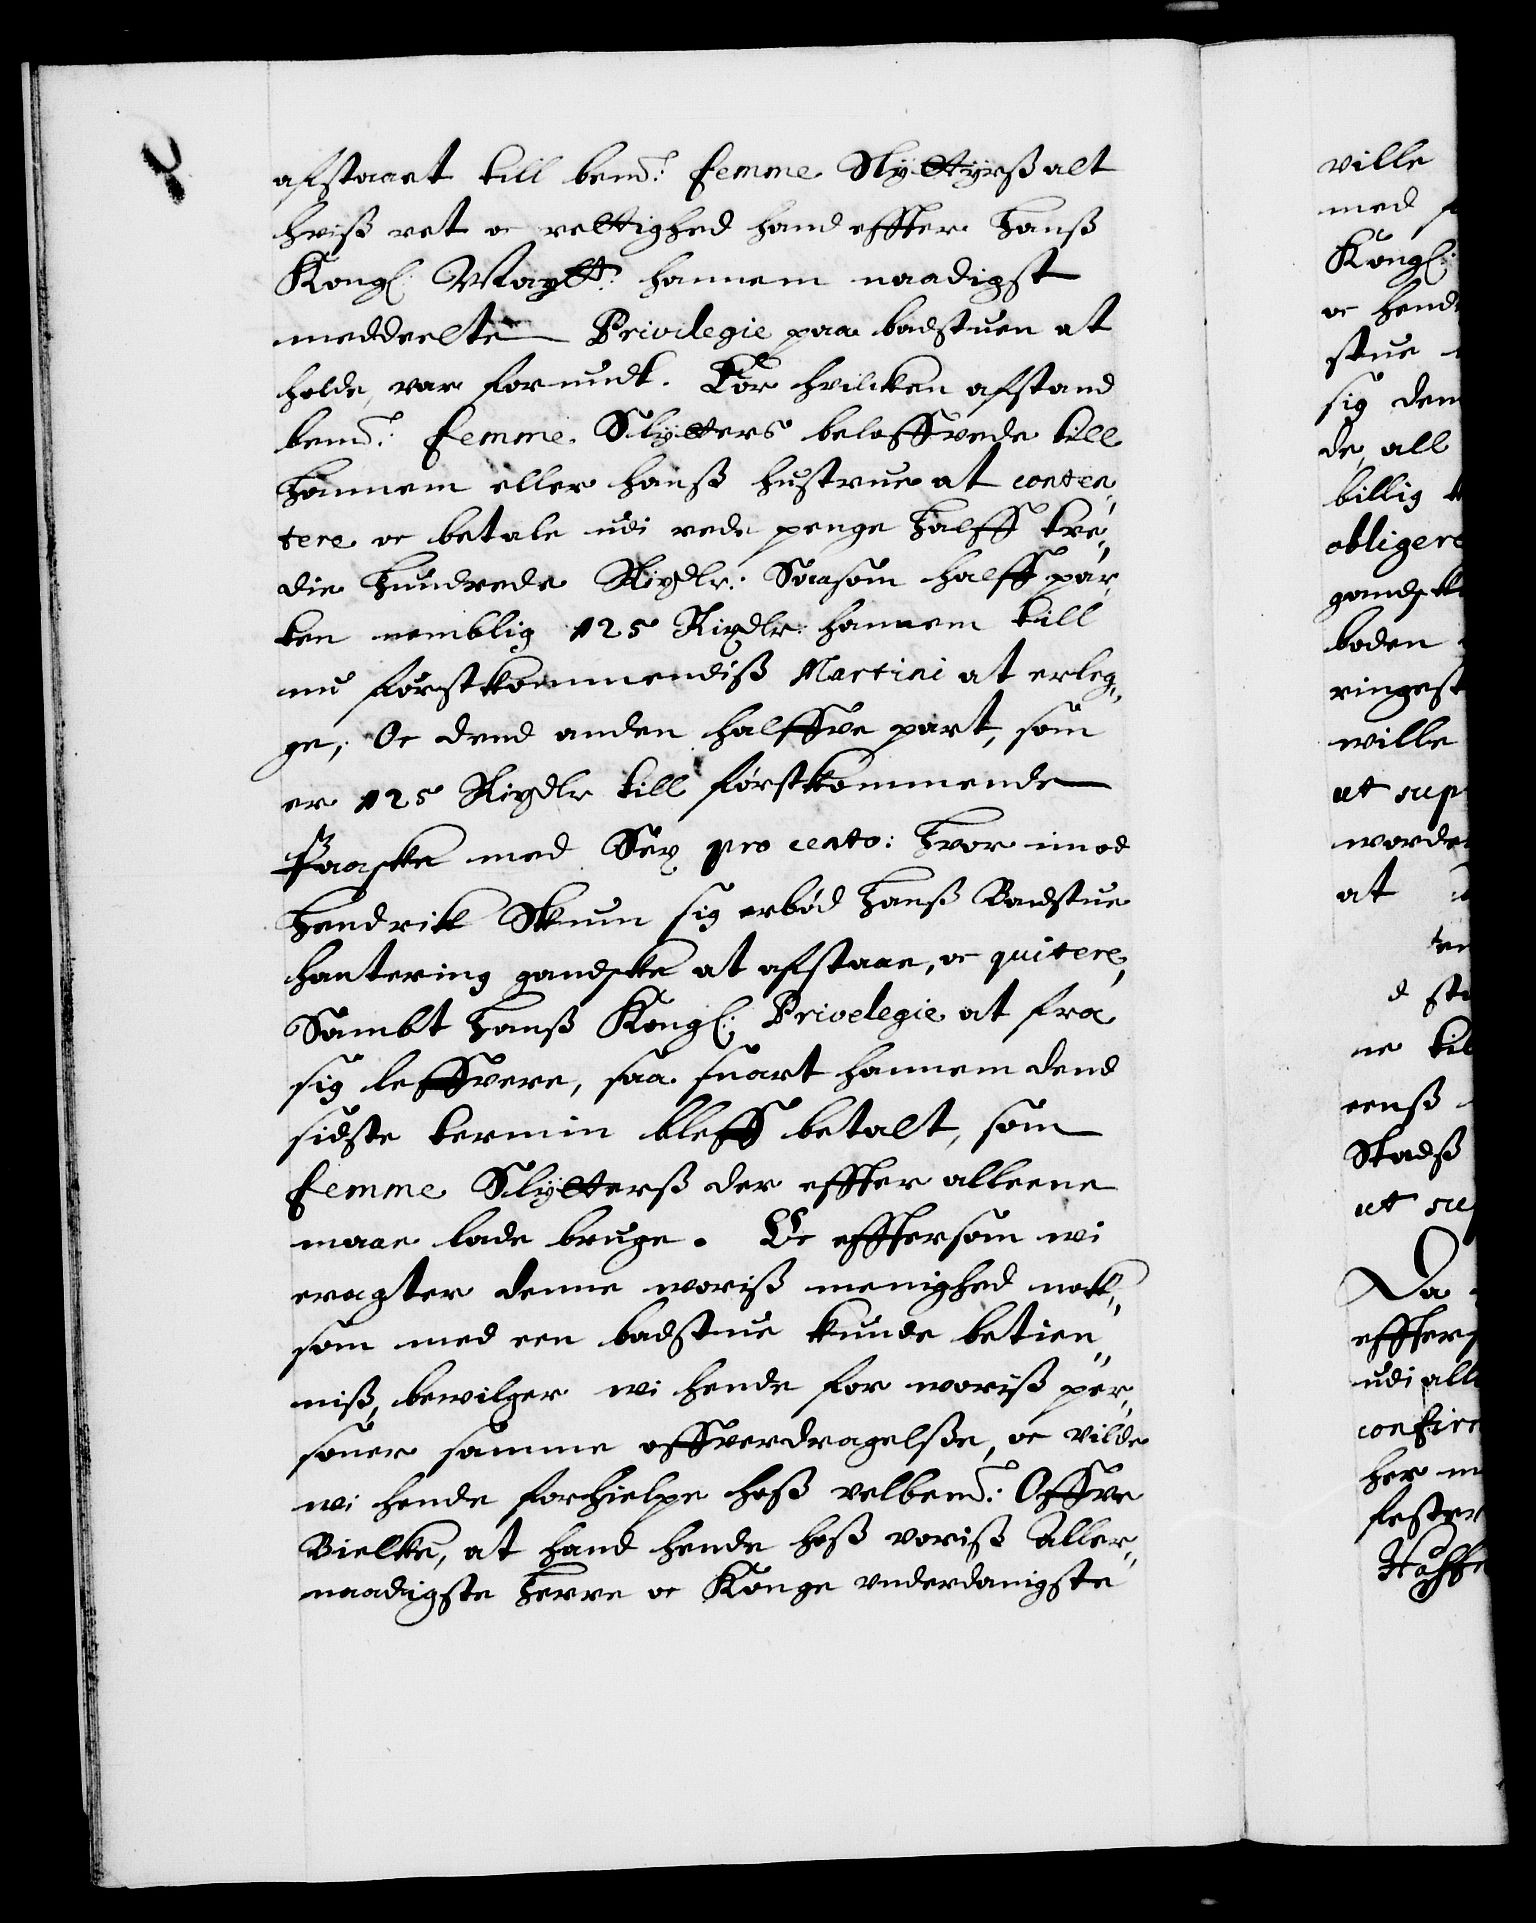 afstaaet till bemd:te femme Slÿttÿrß alt
hviß ret oc rettighed hand effter Hanß
Kongl: Maytt: hannem naadigst
meddeelte Privilegie paa badstuen at
holde, var forundt. For hvilcken afstand
bemd:te femme Slÿtters beloffvede till
Hannem eller hanß hustrue at conten„
tere oc betale udi rede penge Halff tre„
die Hundrede Rixdlr: Saasom halff par„
ten nemblig 125 Rixdlr: hannem till
nu forstkommendiß Martini at erleg„
ge, Oc dend anden halffve part, som
er 125 Rixdlr till førstkommende
Paaske med Sex pro cento: Hvor imod
Hendrik Skum sig erbød Hanß Badstue
hantering gandske at afstaae, oc quitere,
Sambt Hanß Kongl: Privelegie at fra
sig leffvere, saa snart hannem dend
sidste termin bleff betalt, som
femme Slÿtterß der effter alleene
maae lade bruge. Oc efftersom wi
eragter denne woriß menighed nok„
som med een badstue kunde betien„
niß, bewilger wi hende for woriß per„
soner samme offverdragelße, oc vilde
wi hende forhielpe hoß velbemd:te Offve
Bielke, at hand hende hoß voriß Aller„
naadigste Herre oc Konge underdanigste
ville
med
Kongl:
oc hend
stue
sig dem
de, all
billig
obligere
gandske
boden
ringest
wille
ut sup
worde
at
ne till
eenß
Stadß
ut su
Da
effters
udi all
confir
her
fester